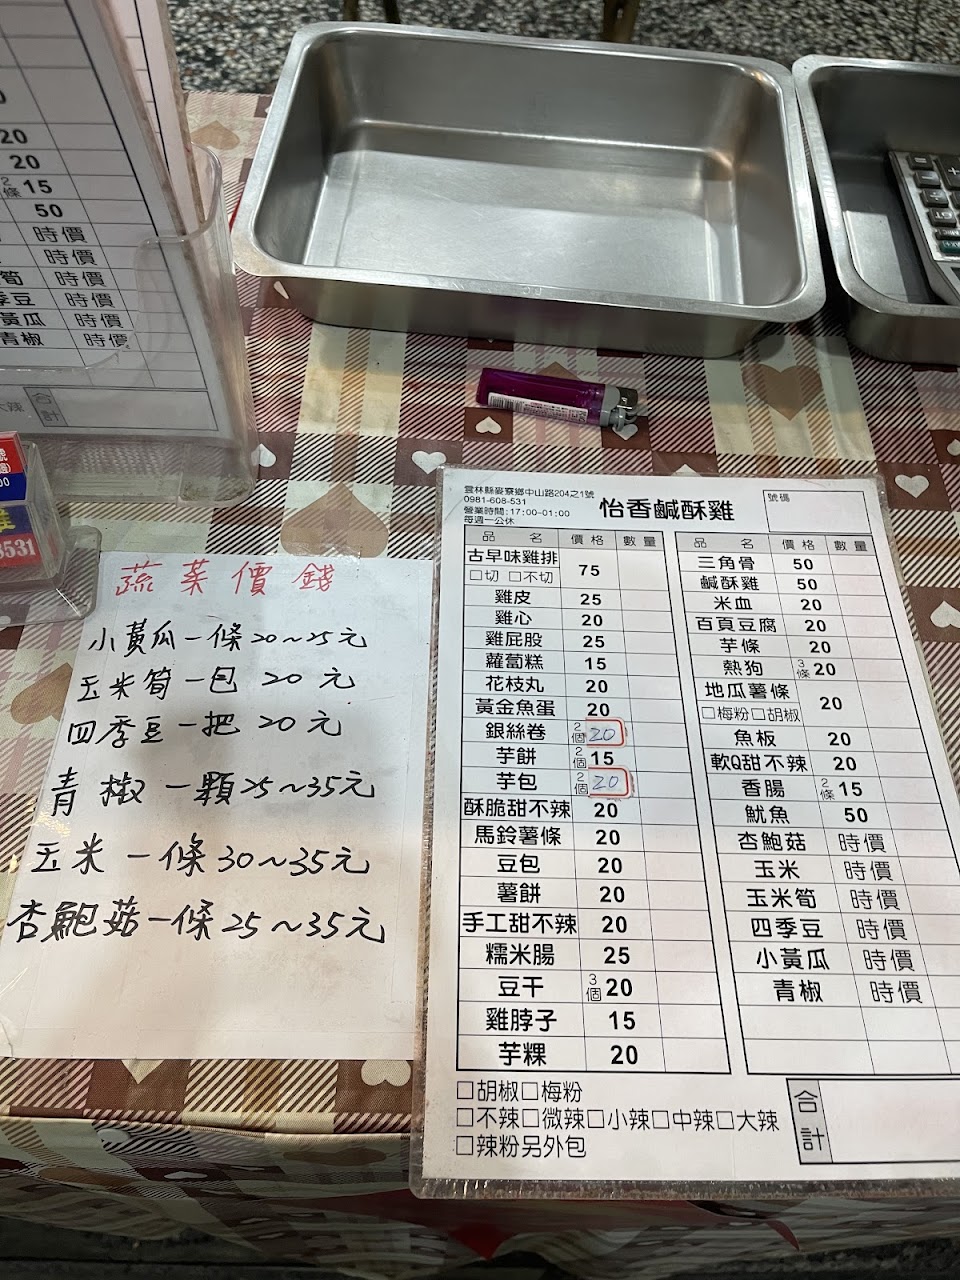 20
20
2條 15
50
時價
時價
筍 時價
季豆 時價
黃瓜 時價
青椒 時價
大辣 合計
00
8531
蔬菜價錢
小黃瓜一條20~25元
玉米筍一包 20元
四季豆一把 20元
青椒 一顆25~35元
玉米 一條30~35元
杏鮑菇一條25~35元
雲林縣麥寮鄉中山路204之1號
0981-608-531
營業時間:17:00-01:00
每週一公休
怡香鹹酥雞
號碼
品名 價格 數量
古早味雞排 75
□切 □不切
雞皮 25
雞心 20
雞屁股 25
蘿蔔糕 15
花枝丸 20
黃金魚蛋 20
銀絲卷 2個 20
芋餅 2個 15
芋包 2個 20
酥脆甜不辣 20
馬鈴薯條 20
豆包 20
薯餅 20
手工甜不辣 20
糯米腸 25
豆干 3個 20
雞脖子 15
芋粿 20
品名 價格 數量
三角骨 50
鹹酥雞 50
米血 20
百頁豆腐 20
芋條 20
熱狗 3條 20
地瓜薯條 20
□梅粉□胡椒
魚板 20
軟Q甜不辣 20
香腸 2條 15
魷魚 50
杏鮑菇 時價
玉米 時價
玉米筍 時價
四季豆 時價
小黃瓜 時價
青椒 時價
□胡椒□梅粉
□不辣□微辣□小辣□中辣□大辣
□辣粉另外包
合計